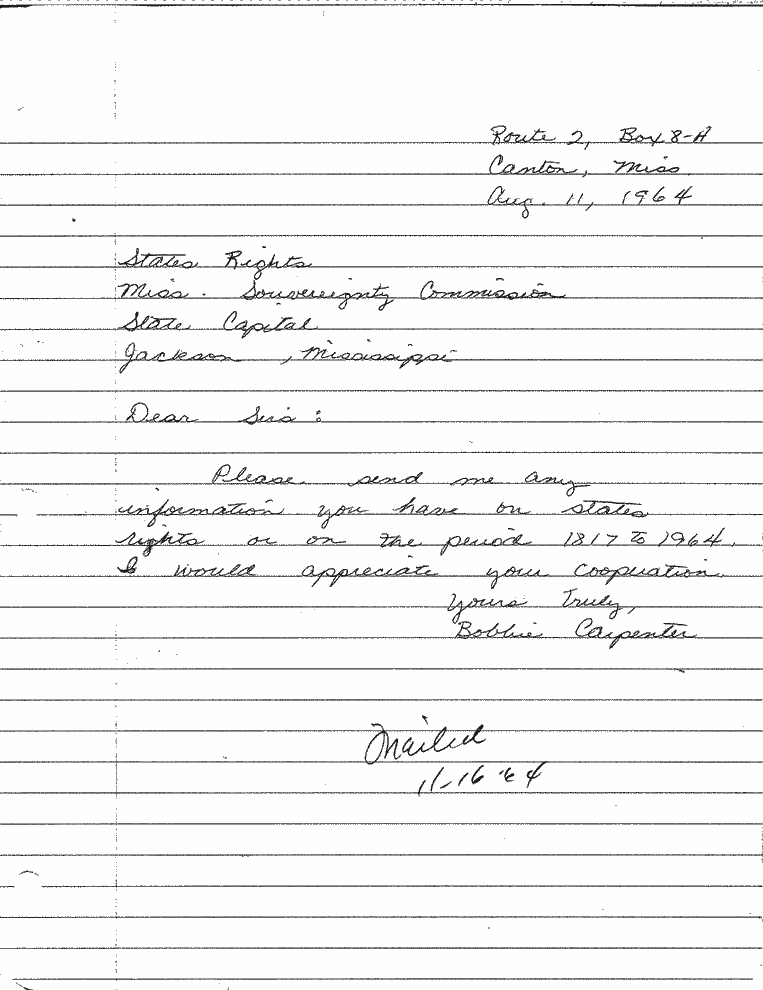 Route 2, Box 8-A
Canton, Miss.
Aug. 11, 1964
States Rights
Miss. Souvereignty Commission
State Capital
Jackson, Mississippi
Dear Sirs:
Please send me any
information you have on states
rights or on the period 1817 to 1964.
I would appreciate your cooperation.
Yours Truly,
Bobbie Carpenter
Mailed
11-16-64